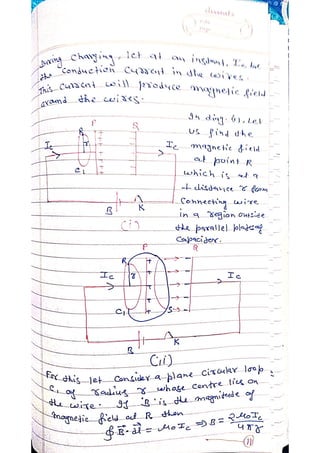 During Charging, let at an instant, Ic be
the Conduction Current in the wires.
This Current will produce magnetic field
around the wires.
In diag. (i), Let
us find the
magnetic field
at point R
which is at a
distance r from
Connecting wire
in a region outside
the parallel plates of
Capacitor.
P
R
Ic
Ic
C1
B
K
(i)
P
Q
R
Ic
r
Ic
C1
S
B
K
(ii)
For this let Consider a plane circular loop
C1 of radius r whose centre lies on
the wire. If 'B' is the magnitude of
magnetic field at R then
∮B⃗·dl⃗ = μ0Ic ⇒ B = 2μ0Ic / 4πr
(11)